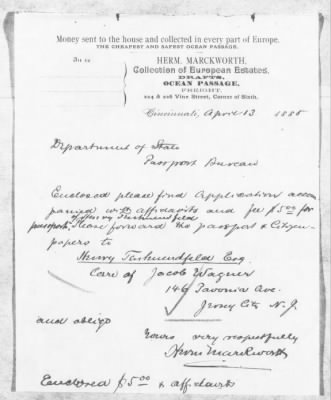 Money sent to the house and collected in every part of Europe.
THE CHEAPEST AND SAFEST OCEAN PASSAGE.
HERM. MARCKWORTH.
Collection of European Estates,
DRAFTS,
OCEAN PASSAGE,
FREIGHT.
224 & 226 Vine Street, Corner of Sixth.
Cincinnati, April 13 1885
Department of State
Passport Bureau
Enclosed please find Application accom
panied with affidavits and fee $5.00 for
of Henry
passport. Please forward the passport & Citizen
papers to
Henry Esq.
Care of Jacob Wagner
146 Pavonia Ave.
Jersey City N. J.
and oblige
Yours very respectfully
Herm Marckworth
Enclosed $5.00 & affidavits